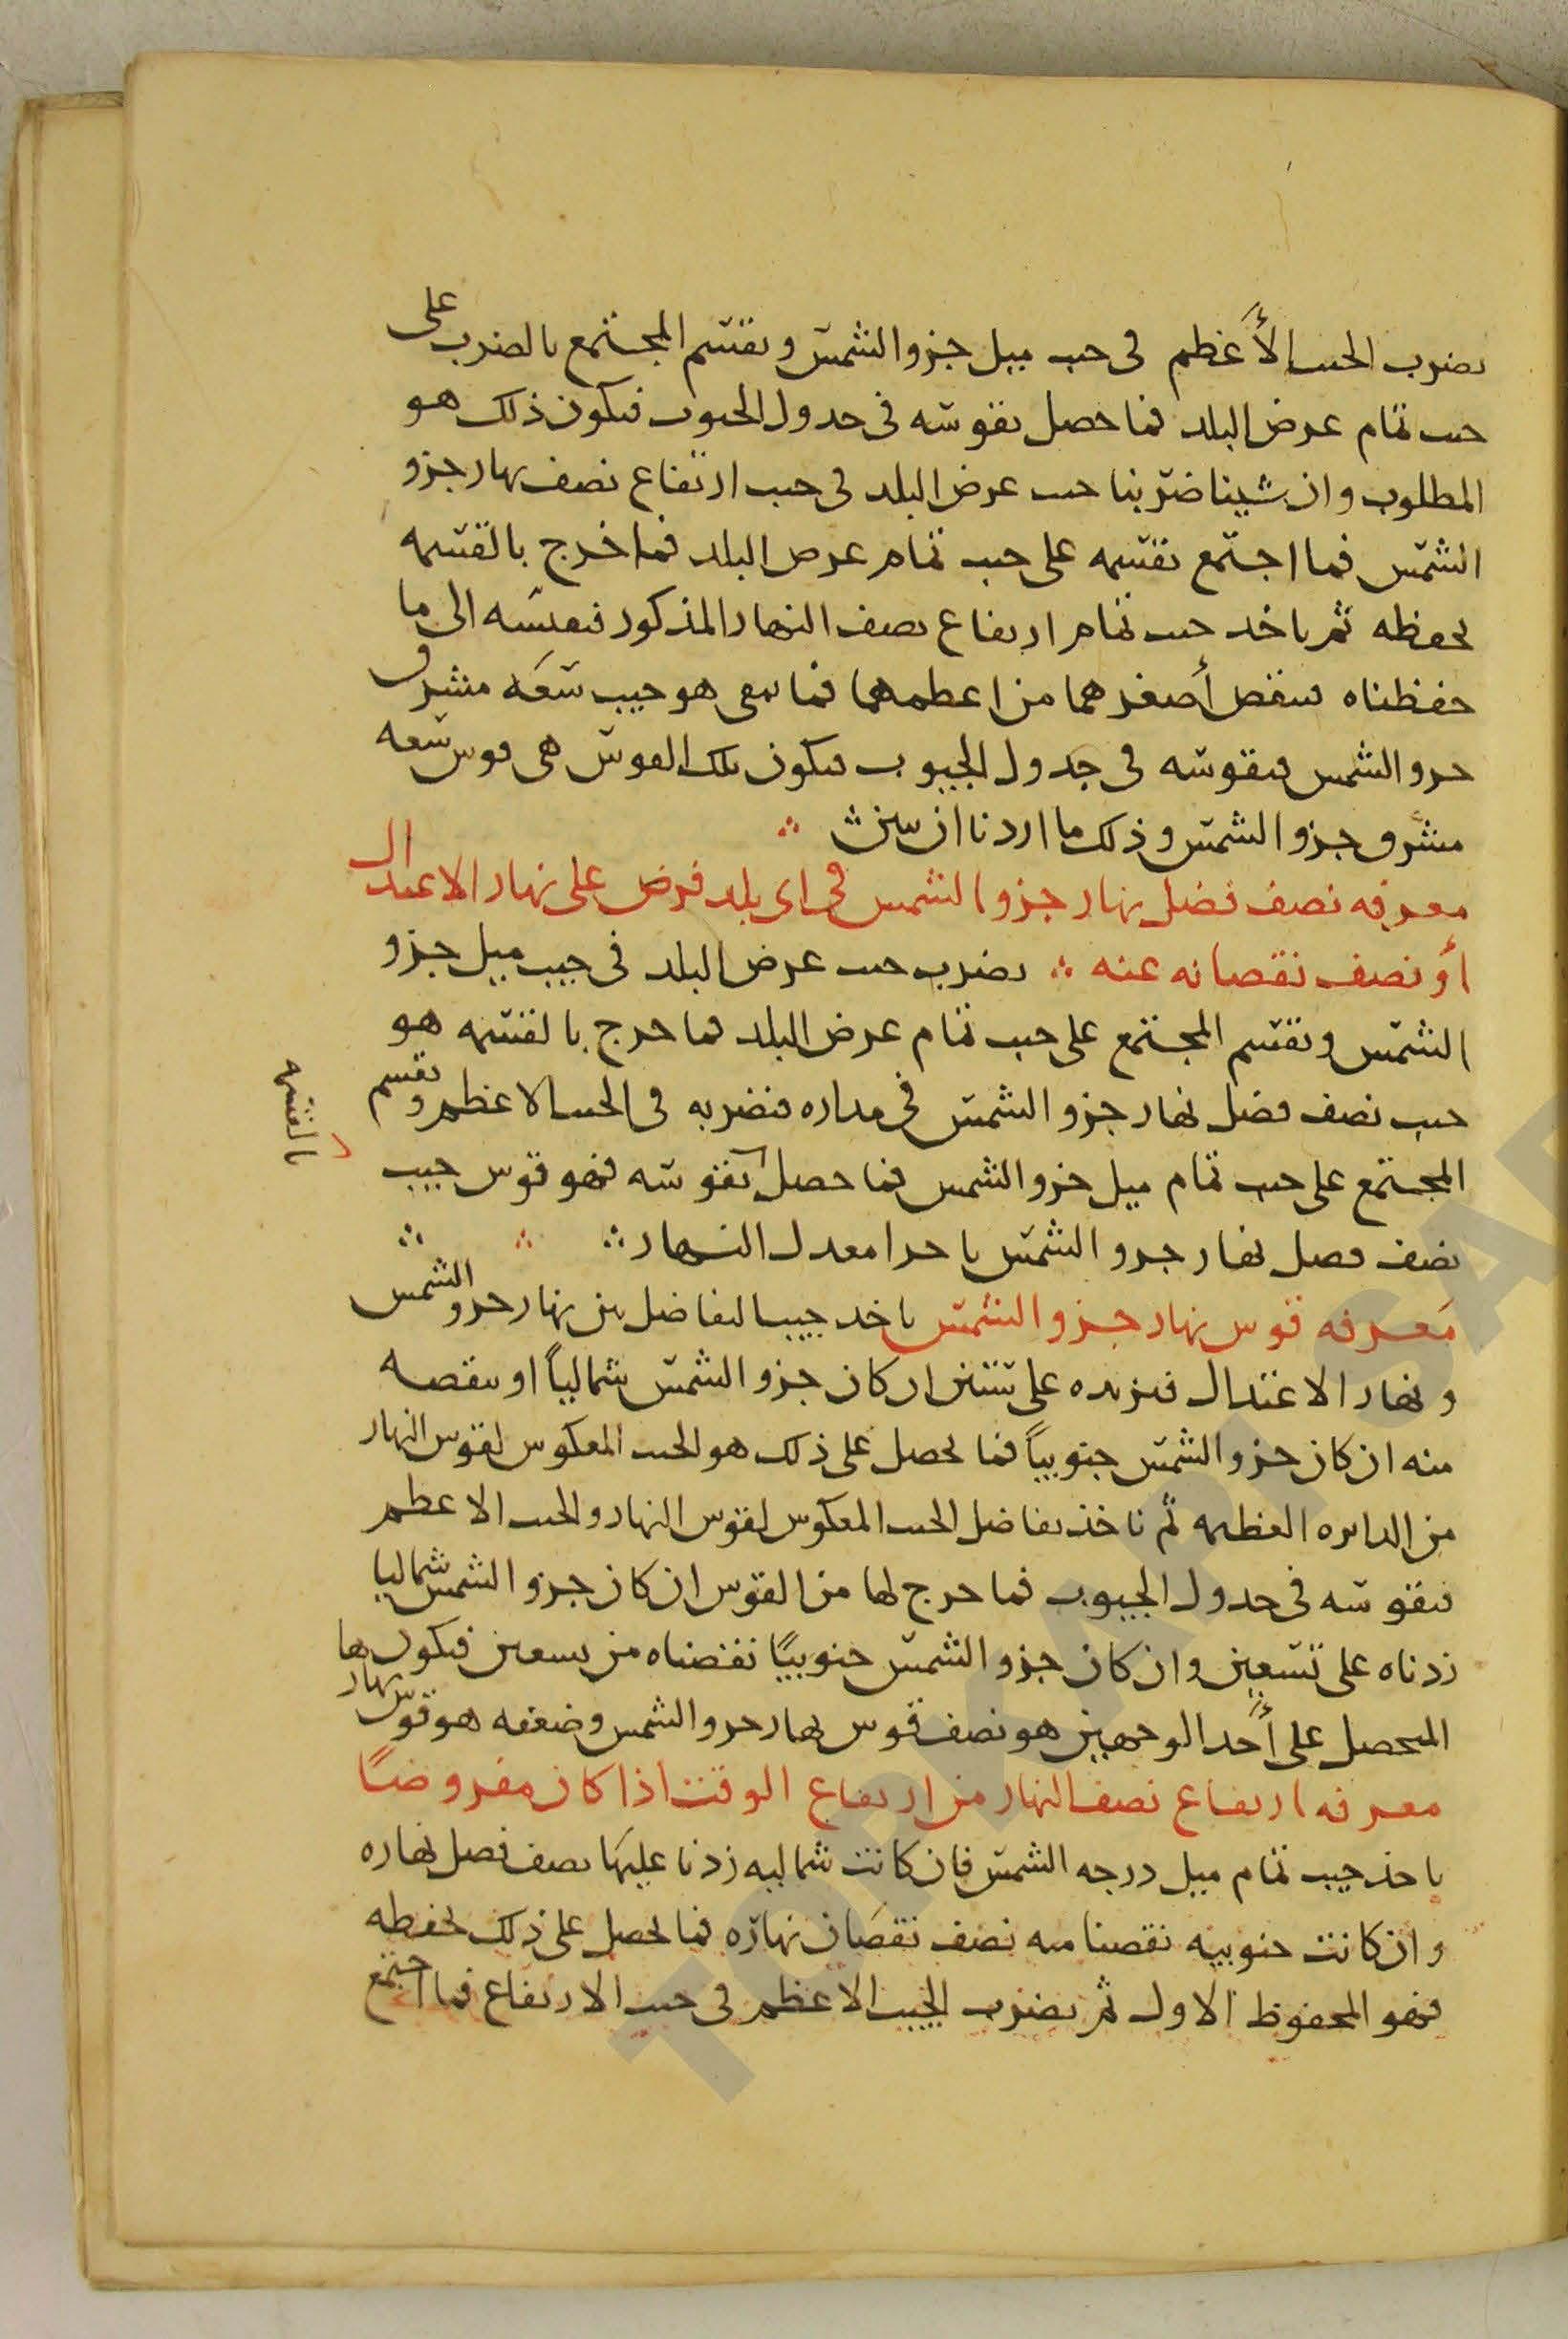 نضرب الجيب الأعظم في جيب ميل جزو الشمس ونقسم المجتمع بالضرب على
جيب تمام عرض البلد فما حصل نقوسه في جدول الجيوب فيكون ذلك هو
المطلوب وان شينا ضربنا جيب عرض البلد في جيب ارتفاع نصف نهار جزو
الشمس فما اجتمع نقسمه على جيب تمام عرض البلد فما خرج بالقسمه
نحفظه ثم ناخد جيب تمام ارتفاع نصف النهار المذكور فنقيسه الى ما
حفظناه فننقص أصغرهما من اعظمهما فما بقى هو جيب سعه مشرق
جزو الشمس فنقوسه في جدول الجيوب فيكون تلك القوس هى قوس سعه
مشرق جزو الشمس وذلك ما اردنا ان نبين ∴
معرفه نصف فضل نهار جزو الشمس في اى بلد فرض على نهار الاعتدال
أو نصف نقصانه عنه ∴ نضرب جيب عرض البلد في جيب ميل جزو
الشمس ونقسم المجتمع على جيب تمام عرض البلد فما خرج بالقسمه هو
جيب نصف فضل نهار جزو الشمس في مداره فنضربه في الجيب الاعظم ونقسم
المجتمع على جيب تمام ميل جزو الشمس فما حصل نقوسه فهو قوس جيب
بالقسمه
نصف فضل نهار جزو الشمس باجزا معدل النهار ∴ ∴ ∴
معرفه قوس نهار جزو الشمس ناخد جيب التفاضل بين نهار جزو الشمس
ونهار الاعتدال فنزيده على ستين ان كان جزو الشمس شمالياً او ننقصه
منه ان كان جزو الشمس جنوبياً فما يحصل على ذلك هو الجيب المعكوس لقوس النهار
من الدايره العظيمه ثم ناخذ تفاضل الجيب المعكوس لقوس النهار والجيب الاعظم
فنقوسه في جدول الجيوب فما خرج لها من القوس ان كان جزو الشمس شماليا
زدناه على تسعين وان كان جزو الشمس جنوبيًا نقصناه من تسعين فيكون ما
المحصل على أحد الوجهين هو نصف قوس نهار جزو الشمس وضعفه هو قوس نهار
معرفه ارتفاع نصف النهار من ارتفاع الوقت اذا كان مفروضاً
ناخذ جيب تمام ميل درجه الشمس فان كانت شماليه زدنا عليها نصف فضل نهاره
وان كانت جنوبيه نقصنا منه نصف نقصان نهاره فما يحصل على ذلك نحفظه
فهو المحفوظ الاول ثم نضرب الجيب الاعظم في جيب الارتفاع فما اجتمع